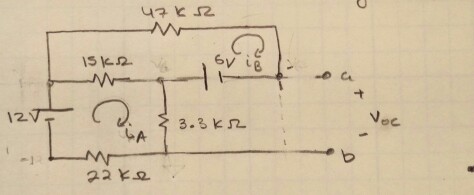 47 K Ω
15 K Ω
6V
i_B
a
+
12V
i_A
3.3 K Ω
V_OC
-
b
22 K Ω